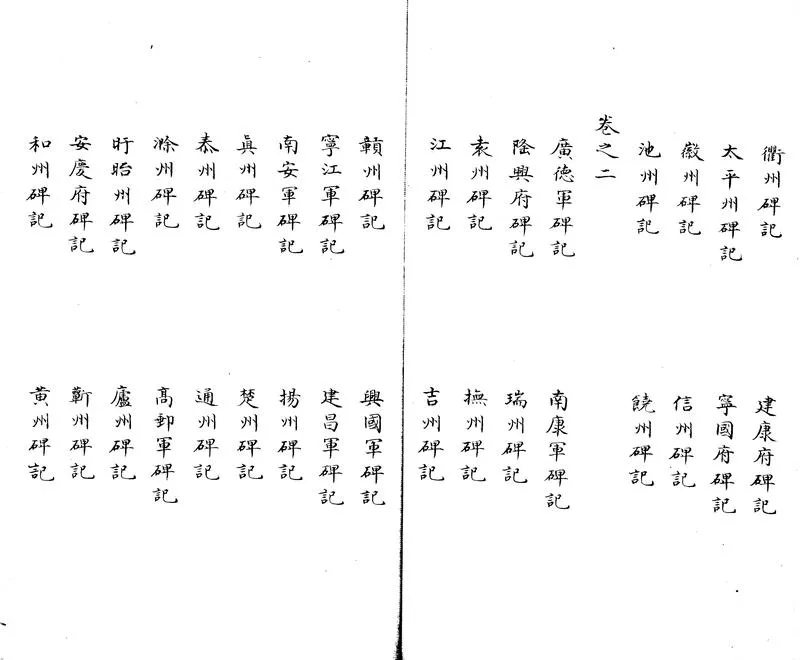 衢州碑記 建康府碑記
太平州碑記 寧國府碑記
徽州碑記 信州碑記
池州碑記 饒州碑記
卷之二
廣德軍碑記 南康軍碑記
隆興府碑記 瑞州碑記
袁州碑記 撫州碑記
江州碑記 吉州碑記
贑州碑記 興國軍碑記
寧江軍碑記 建昌軍碑記
南安軍碑記 揚州碑記
眞州碑記 楚州碑記
泰州碑記 通州碑記
滁州碑記 高郵軍碑記
盱眙州碑記 廬州碑記
安慶府碑記 蘄州碑記
和州碑記 黃州碑記